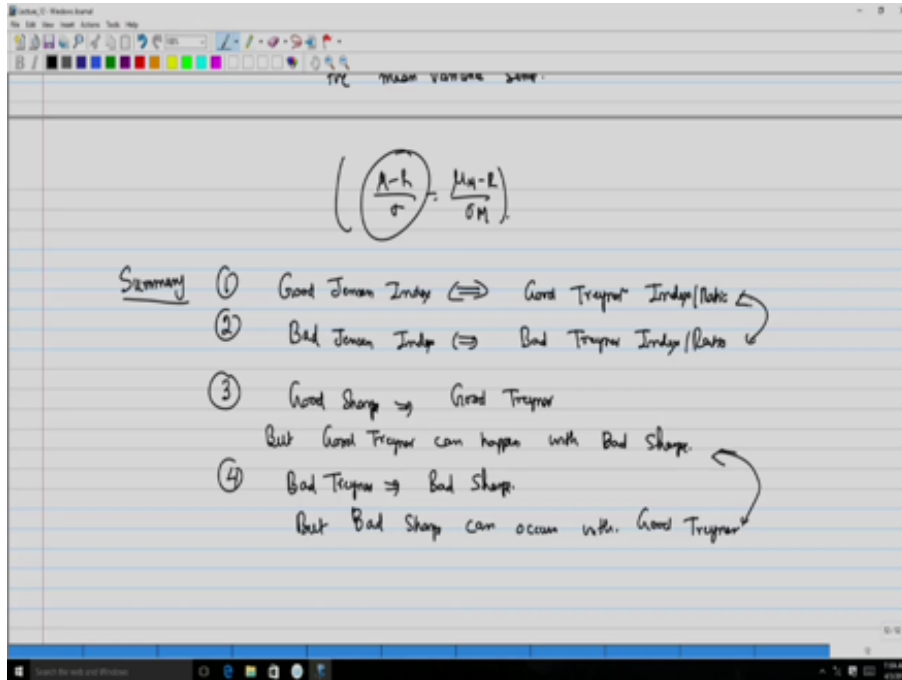 Lecture_12 - Windows Journal
File Edit View Insert Actions Tools Help
the mean variance setup.
( μ-R/σ - μM-R/σM ).
Summary ① Good Jensen Index ⟺ Good Treynor Index/Ratio
② Bad Jensen Index ⟺ Bad Treynor Index/Ratio
③ Good Sharpe ⇒ Good Treynor
But Good Treynor can happen with Bad Sharpe.
④ Bad Treynor ⇒ Bad Sharpe.
But Bad Sharpe can occur with. Good Treynor
Search the web and Windows